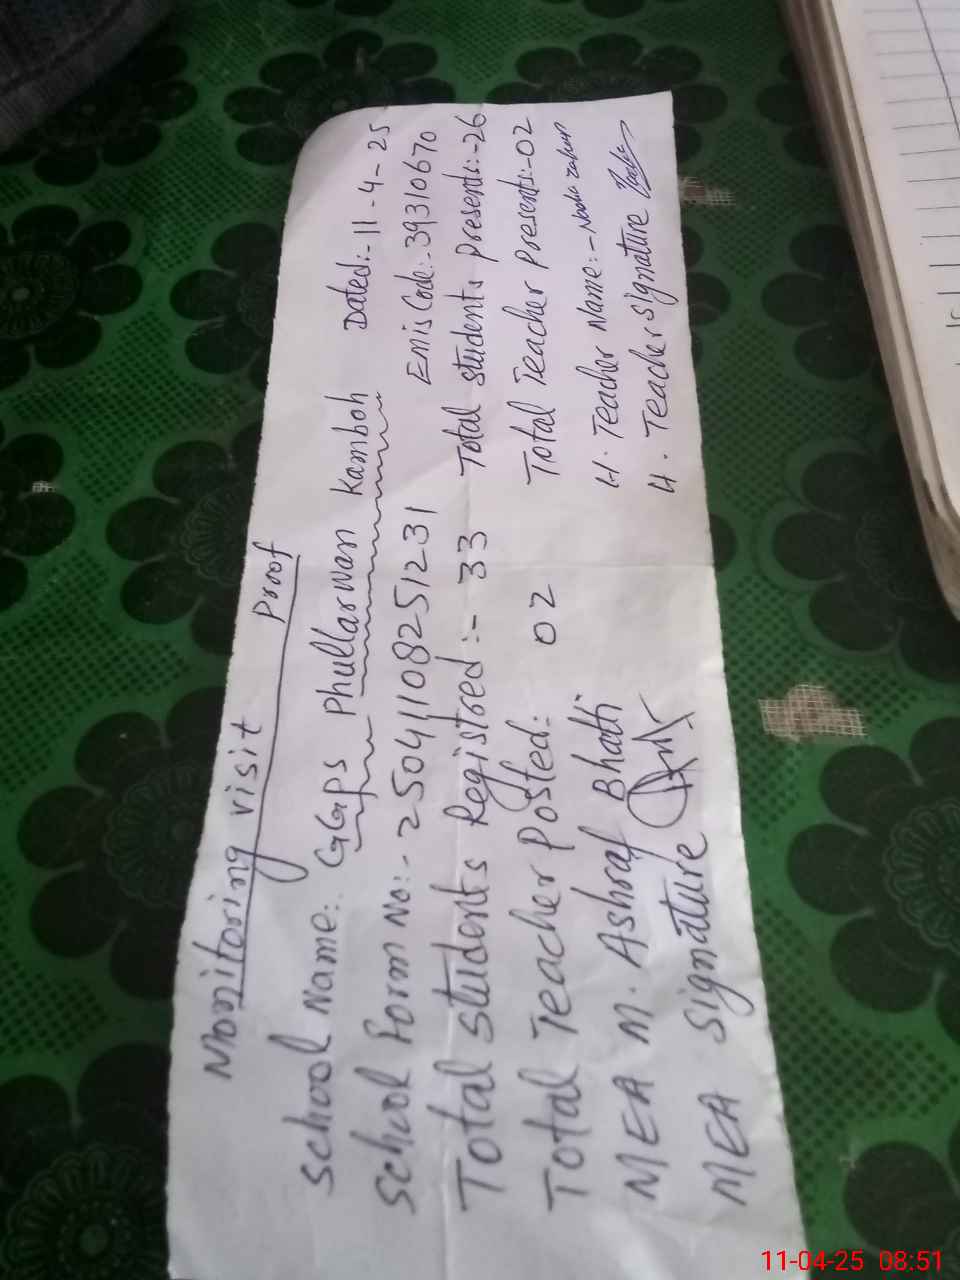 Monitoring visit Proof
School Name:. GGPS Phullarwan Kamboh Dated:- 11-4-25
School Form No:- 25041108251231 Emis Code:-39310670
Total Students Registored:- 33 Total Students Presents:-26
Total Teacher Posted: 02 Total Teacher Presents:-02
MEA M. Ashraf Bhatti H. Teacher Name:-
MEA Signature H. Teacher Signature
11-04-25 08:51